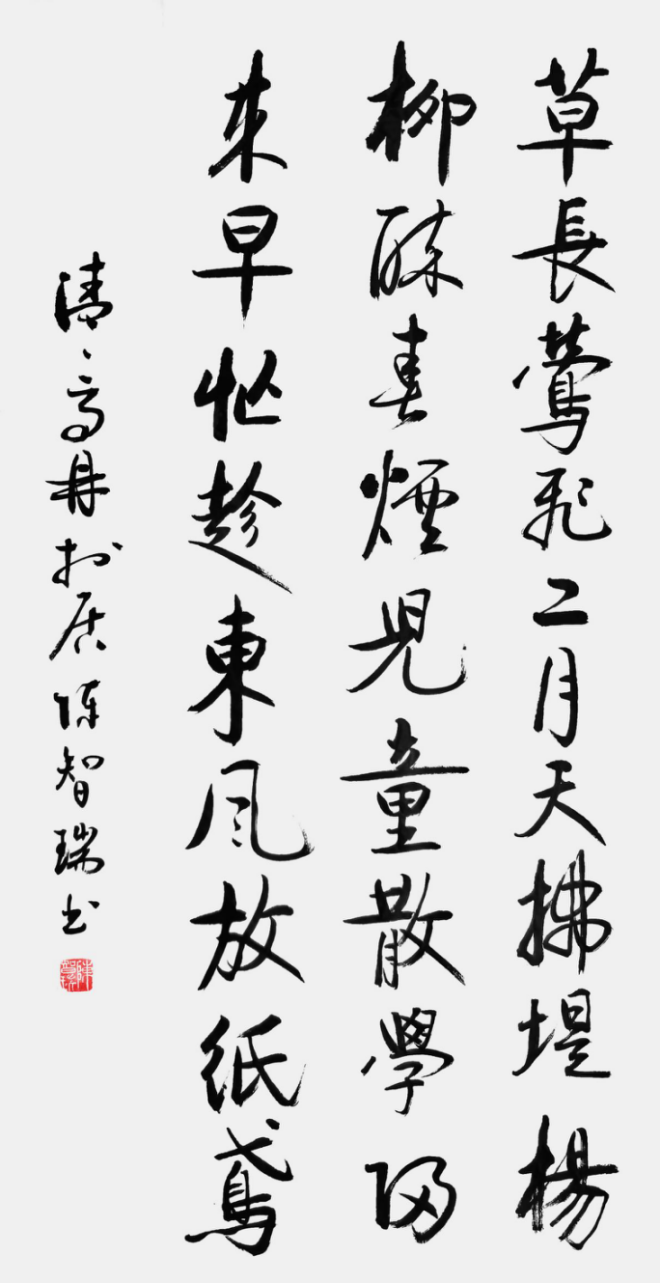 草長鶯飛二月天拂堤楊
柳醉春煙兒童散學歸
來早忙趁東風放紙鳶
清高鼎村居陳智瑞书